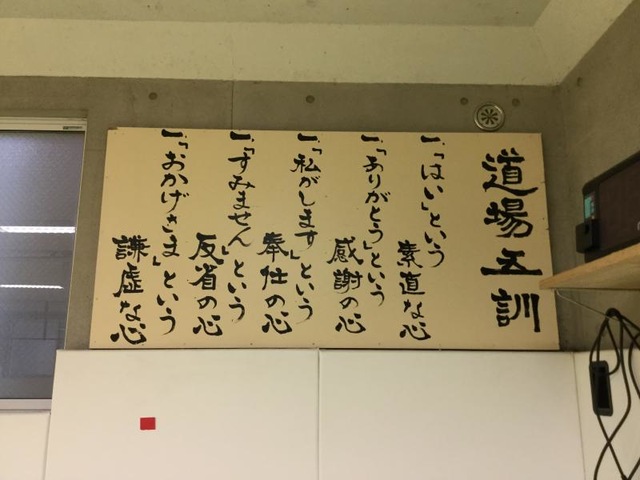 道場五訓
一.「はい」という
素直な心
一.「ありがとう」という
感謝の心
一.「私がします」という
奉仕の心
一.「すみません」という
反省の心
一.「おかげさま」という
謙虚な心